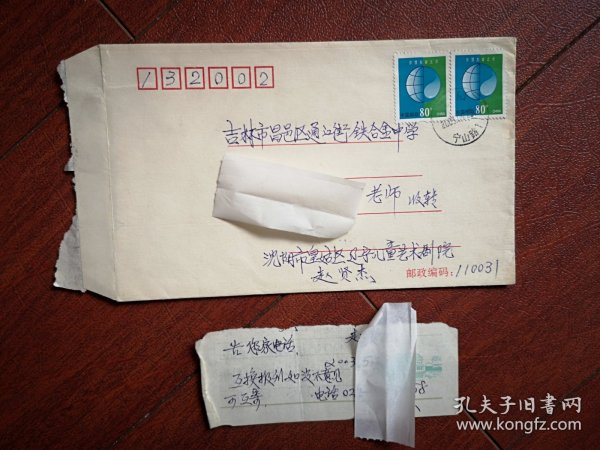 132002
80分
80分
宁山路
吉林市昌邑区通江街铁合金中学
老师 收转
沈阳市皇姑区辽宁儿童艺术剧院
赵贤杰
邮政编码：110031
告您家电话。
互换报刊如没意见
可互寄。
电话02
8
孔夫子旧书网
www.kongfz.com